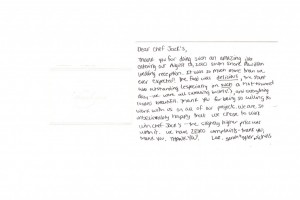 Dear Chef Jack's,
Thank you for doing such an amazing job
catering our August 13, 2010 Smith Shore Pavilion
wedding reception. It was so much more than we
ever expected! The food was delicious, the staff
was outstanding (especially on such a hot + humid
day - we were all sweating buckets), and everything
looked beautiful. Thank you for being so willing to
work with us on all of our projects. We are so
unbelievably happy that we chose to work
with Chef Jack's - the slightly higher price was
worth it. We have ZERO complaints - thank you,
thank you, THANK YOU! Love,